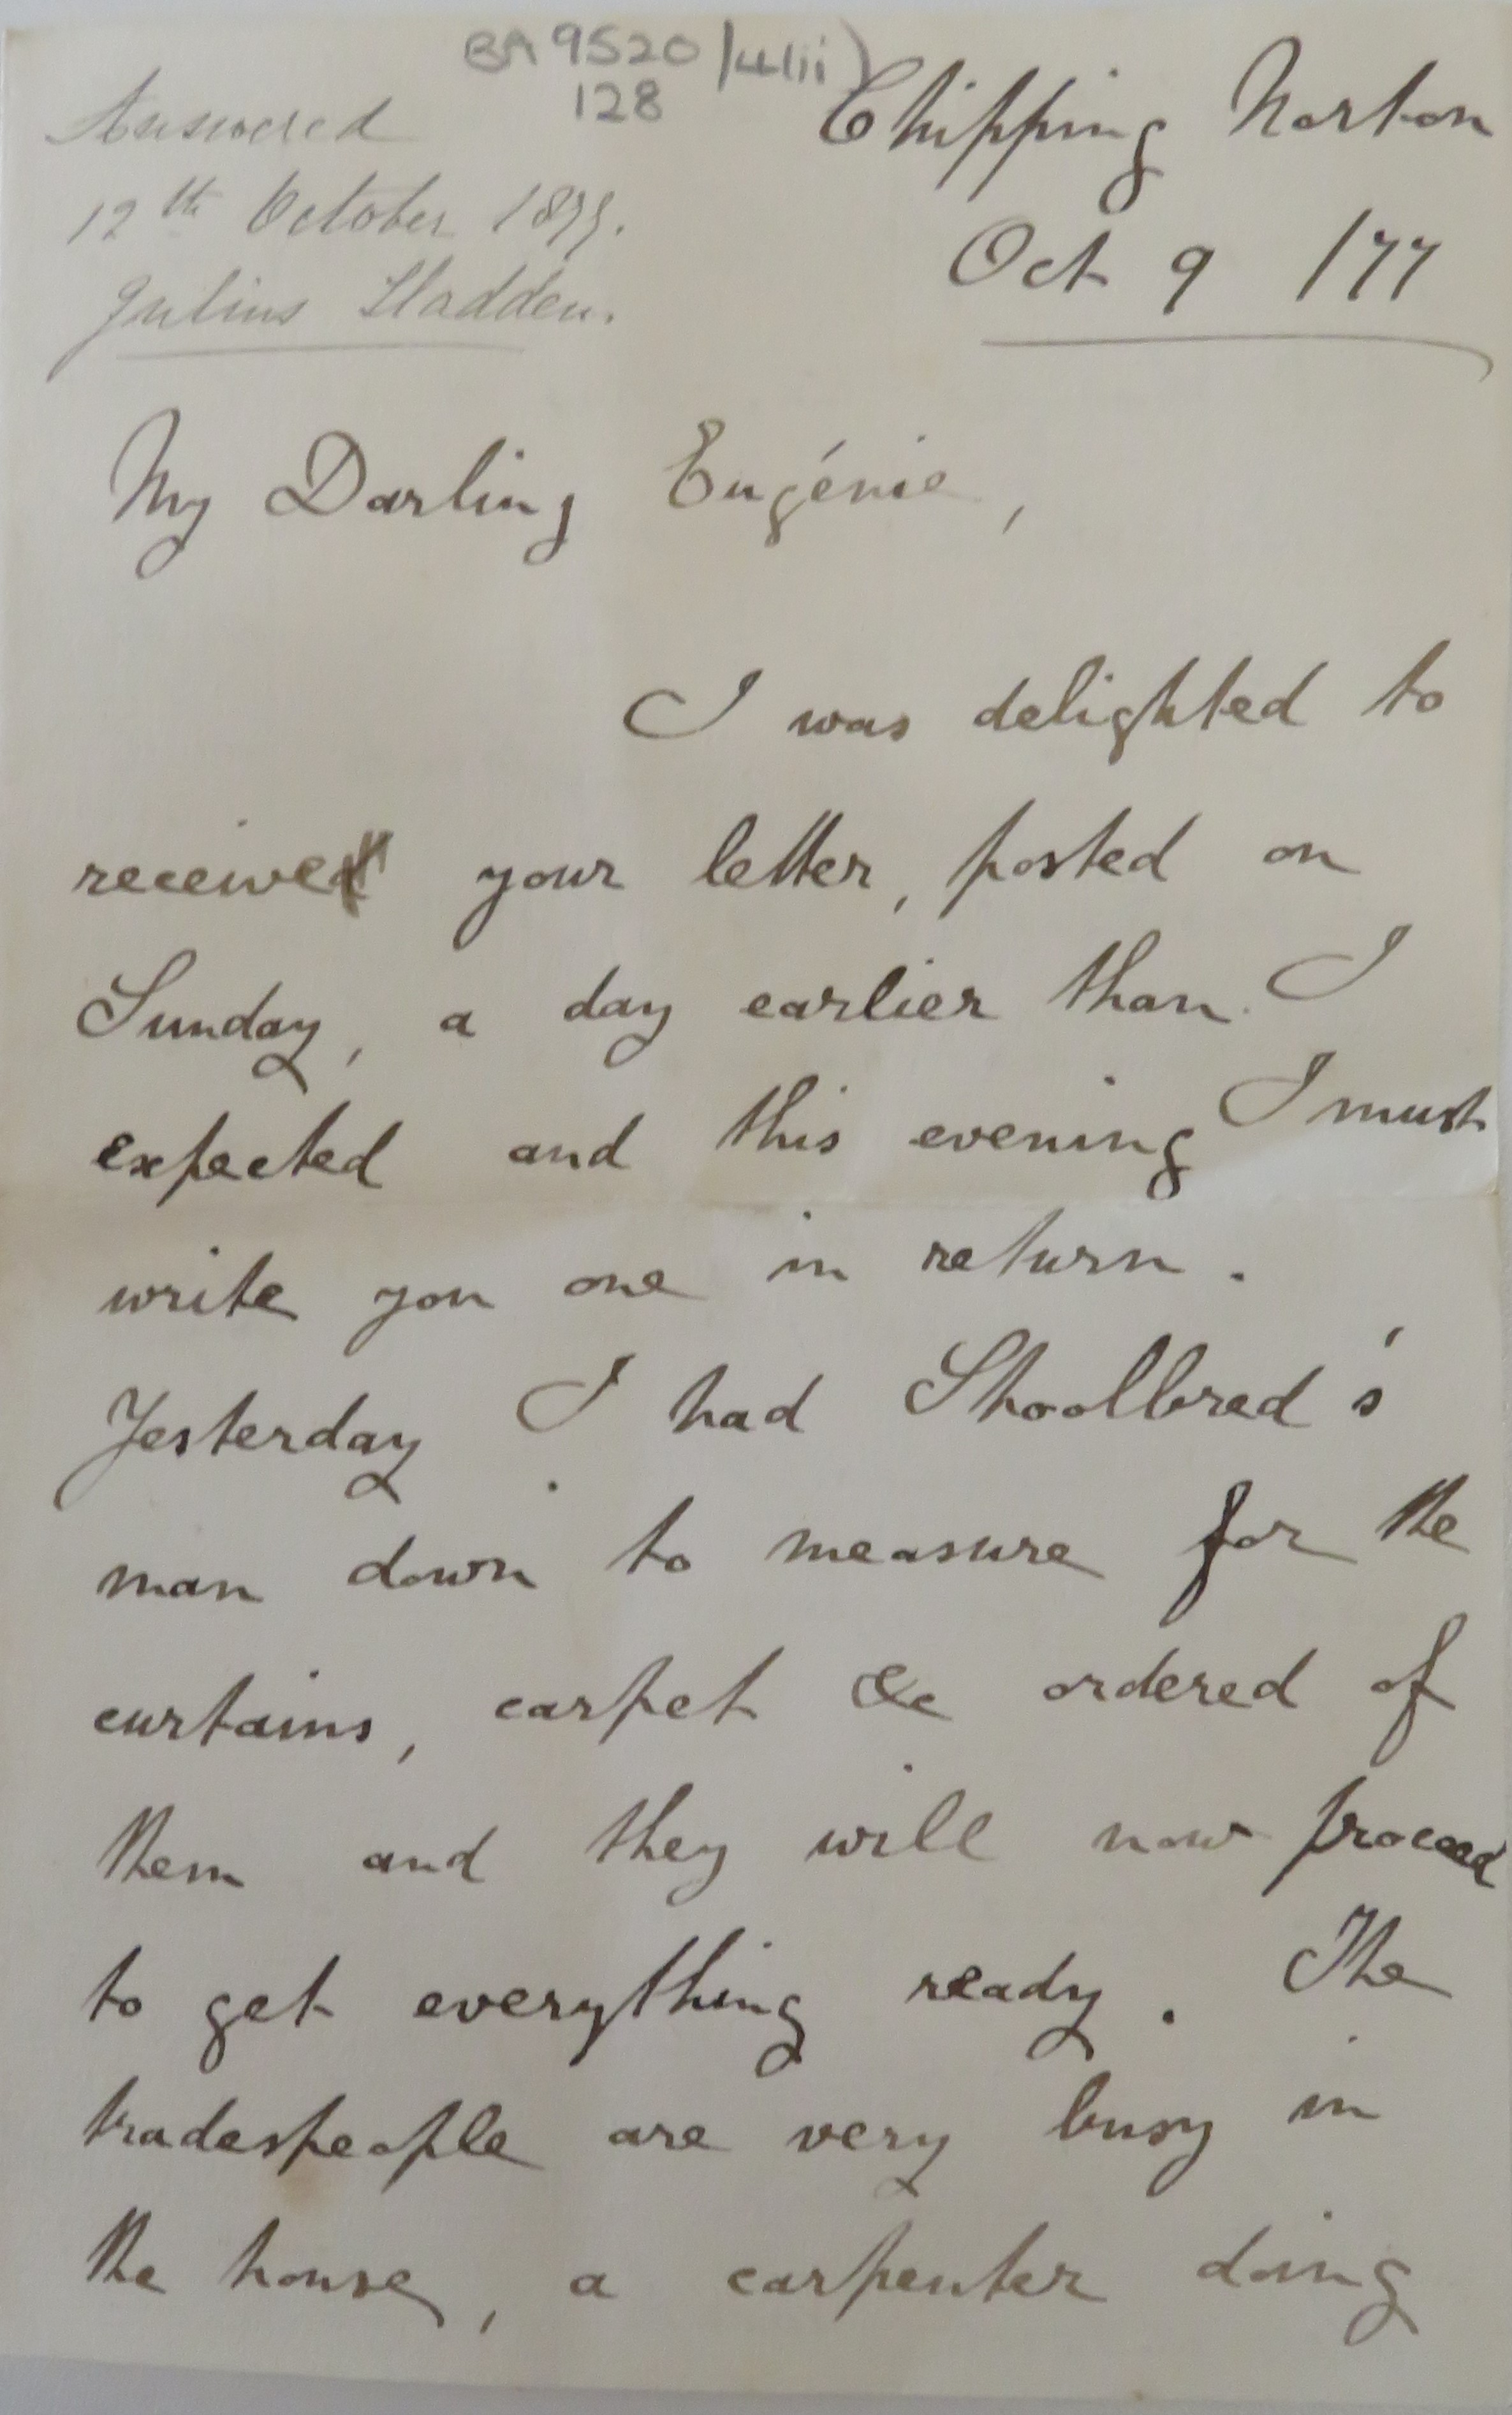 BA 9520/4(ii)
128
Answered
12th October 1877.
Julius Sladden.
Chipping Norton
Oct 9 /77
My Darling Eugénie,
I was delighted to
receive your letter, posted on
Sunday, a day earlier than I
expected and this evening I must
write you one in return.
Yesterday I had Shoolbred's
man down to measure for the
curtains, carpet &c ordered of
them and they will now proceed
to get everything ready. The
tradespeople are very busy in
the house, a carpenter doing